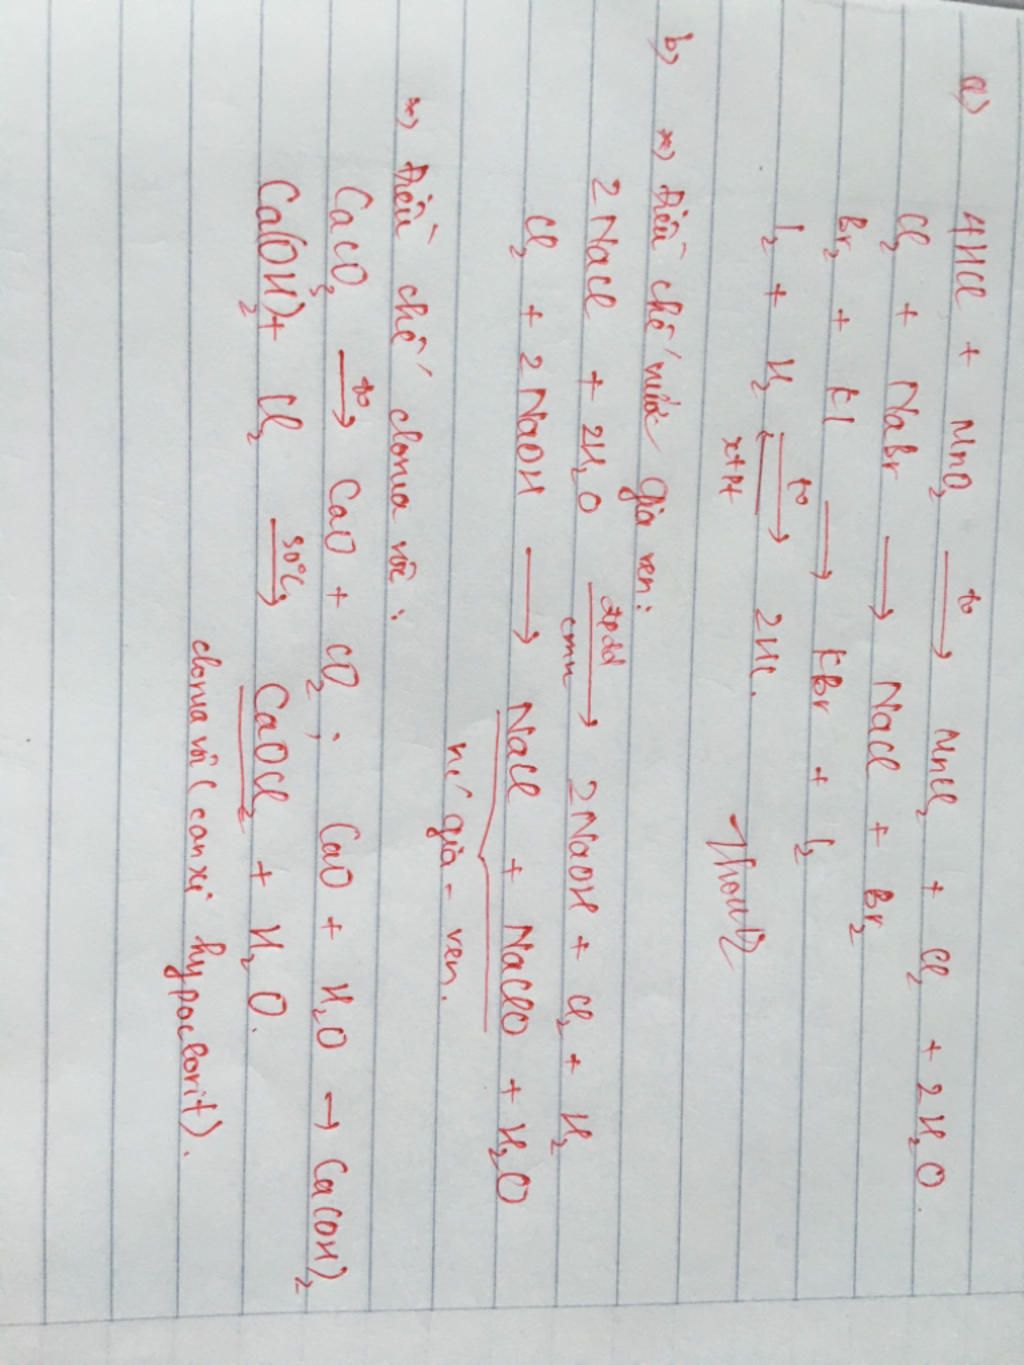 a) 4HCl + MnO₂ —t°→ MnCl₂ + Cl₂ + 2H₂O.
Cl₂ + NaBr → NaCl + Br₂
Br₂ + KI → KBr + I₂
I₂ + H₂ ⇌ 2HI.
t°
xt Pt
b) *) Điều chế nước gia ven:
2NaCl + 2H₂O —đpdd→ 2NaOH + Cl₂ + H₂
cmn
Cl₂ + 2NaOH → NaCl + NaClO + H₂O
nc' gia - ven.
*) Điều chế clorua vôi:
CaCO₃ —t°→ CaO + CO₂; CaO + H₂O → Ca(OH)₂
Ca(OH)₂ + Cl₂ —30°C→ CaOCl₂ + H₂O.
clorua vôi (canxi hypoclorit).